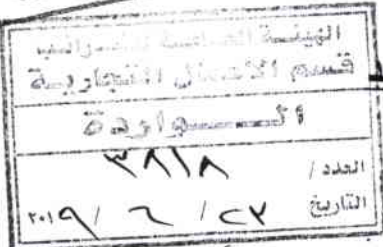 الهيئة العامة للضرائب
قسم الاعمال التجارية
الـــواردة
العدد / ٣٨١٨
التاريخ ٢٧ / ٢ / ٢٠١٩